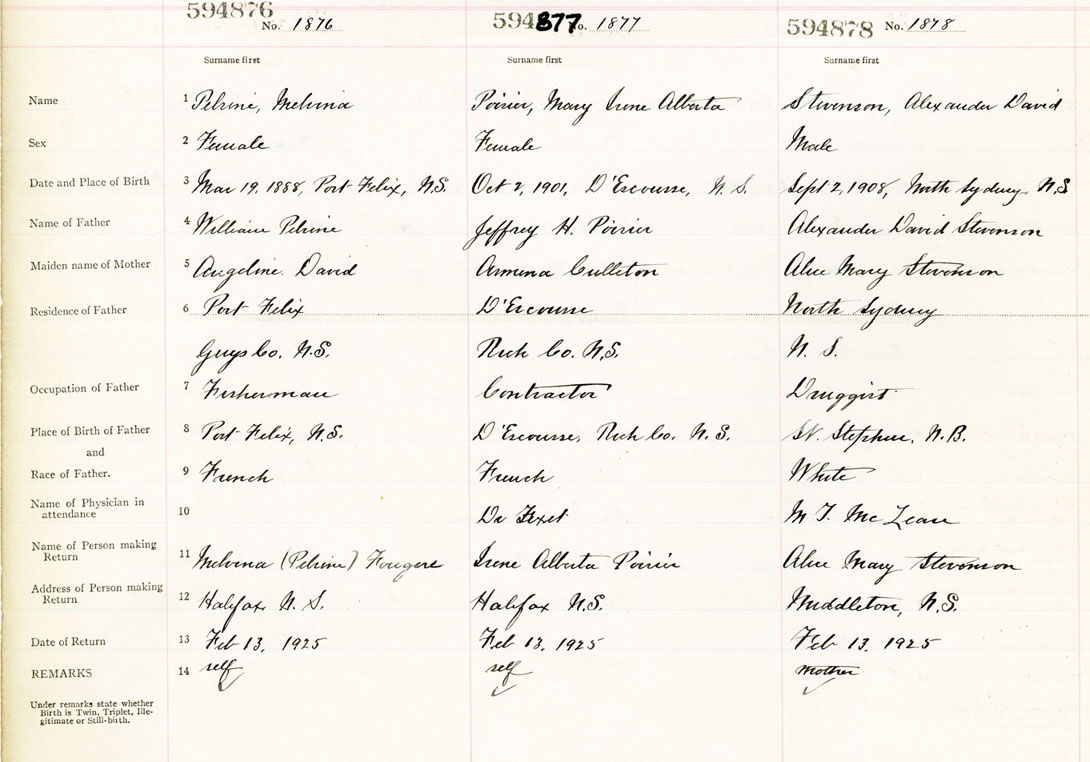 594876 No. 1876 594877 No. 1877 594878 No. 1878
Surname first Surname first Surname first
Name 1 Pelrine, Melvina Poirier, Mary Irene Alberta Stevenson, Alexander David
Sex 2 Female Female Male
Date and Place of Birth 3 Mar 19, 1888, Port Felix, N.S. Oct 2, 1901, D'Escousse, N.S. Sept 2, 1908, North Sydney, N.S
Name of Father 4 William Pelrine Jeffrey H. Poirier Alexander David Stevenson
Maiden name of Mother 5 Angeline David Armena Culleton Alice Mary Stevenson
Residence of Father 6 Port Felix D'Escousse North Sydney
Guys Co. N.S. Rich Co. N.S. N. S.
Occupation of Father 7 Fisherman Contractor Druggist
Place of Birth of Father 8 Port Felix, N.S. D'Escousse, Rich Co. N.S. St. Stephen, N.B.
and
Race of Father. 9 French French White
Name of Physician in
attendance 10 Dr M T. McLean
Name of Person making
Return 11 Melvina (Pelrine) Fougere Irene Alberta Poirier Alice Mary Stevenson
Address of Person making
Return 12 Halifax N. S. Halifax N.S. Middleton, N.S.
Date of Return 13 Feb 13, 1925 Feb 13, 1925 Feb 13, 1925
REMARKS 14 self self mother
Under remarks state whether
Birth is Twin, Triplet, Ille-
gitimate or Still-birth.